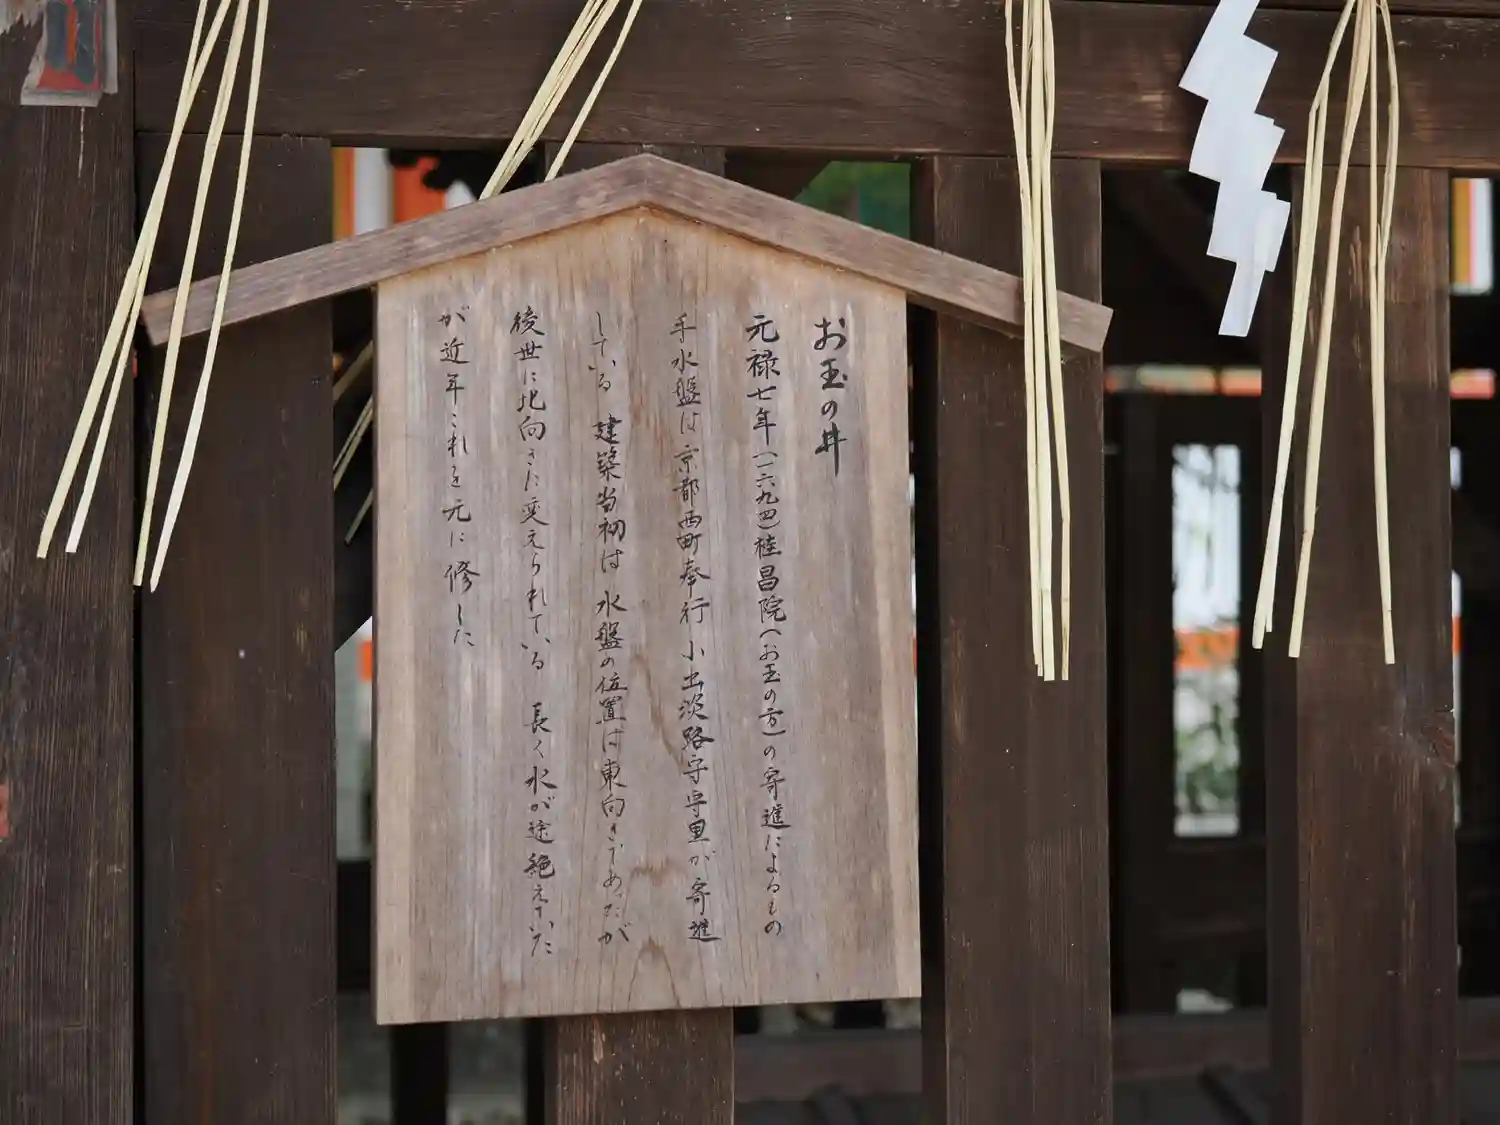 お玉の井
元禄七年(一六九四)桂昌院(お玉の方)の寄進によるもの
手水盤は京都西町奉行 小出淡路守守里が寄進
している 建築当初は 水盤の位置は東向きであったが
後世に北向きに変えられている 長く水が途絶えていた
が近年これを元に修した